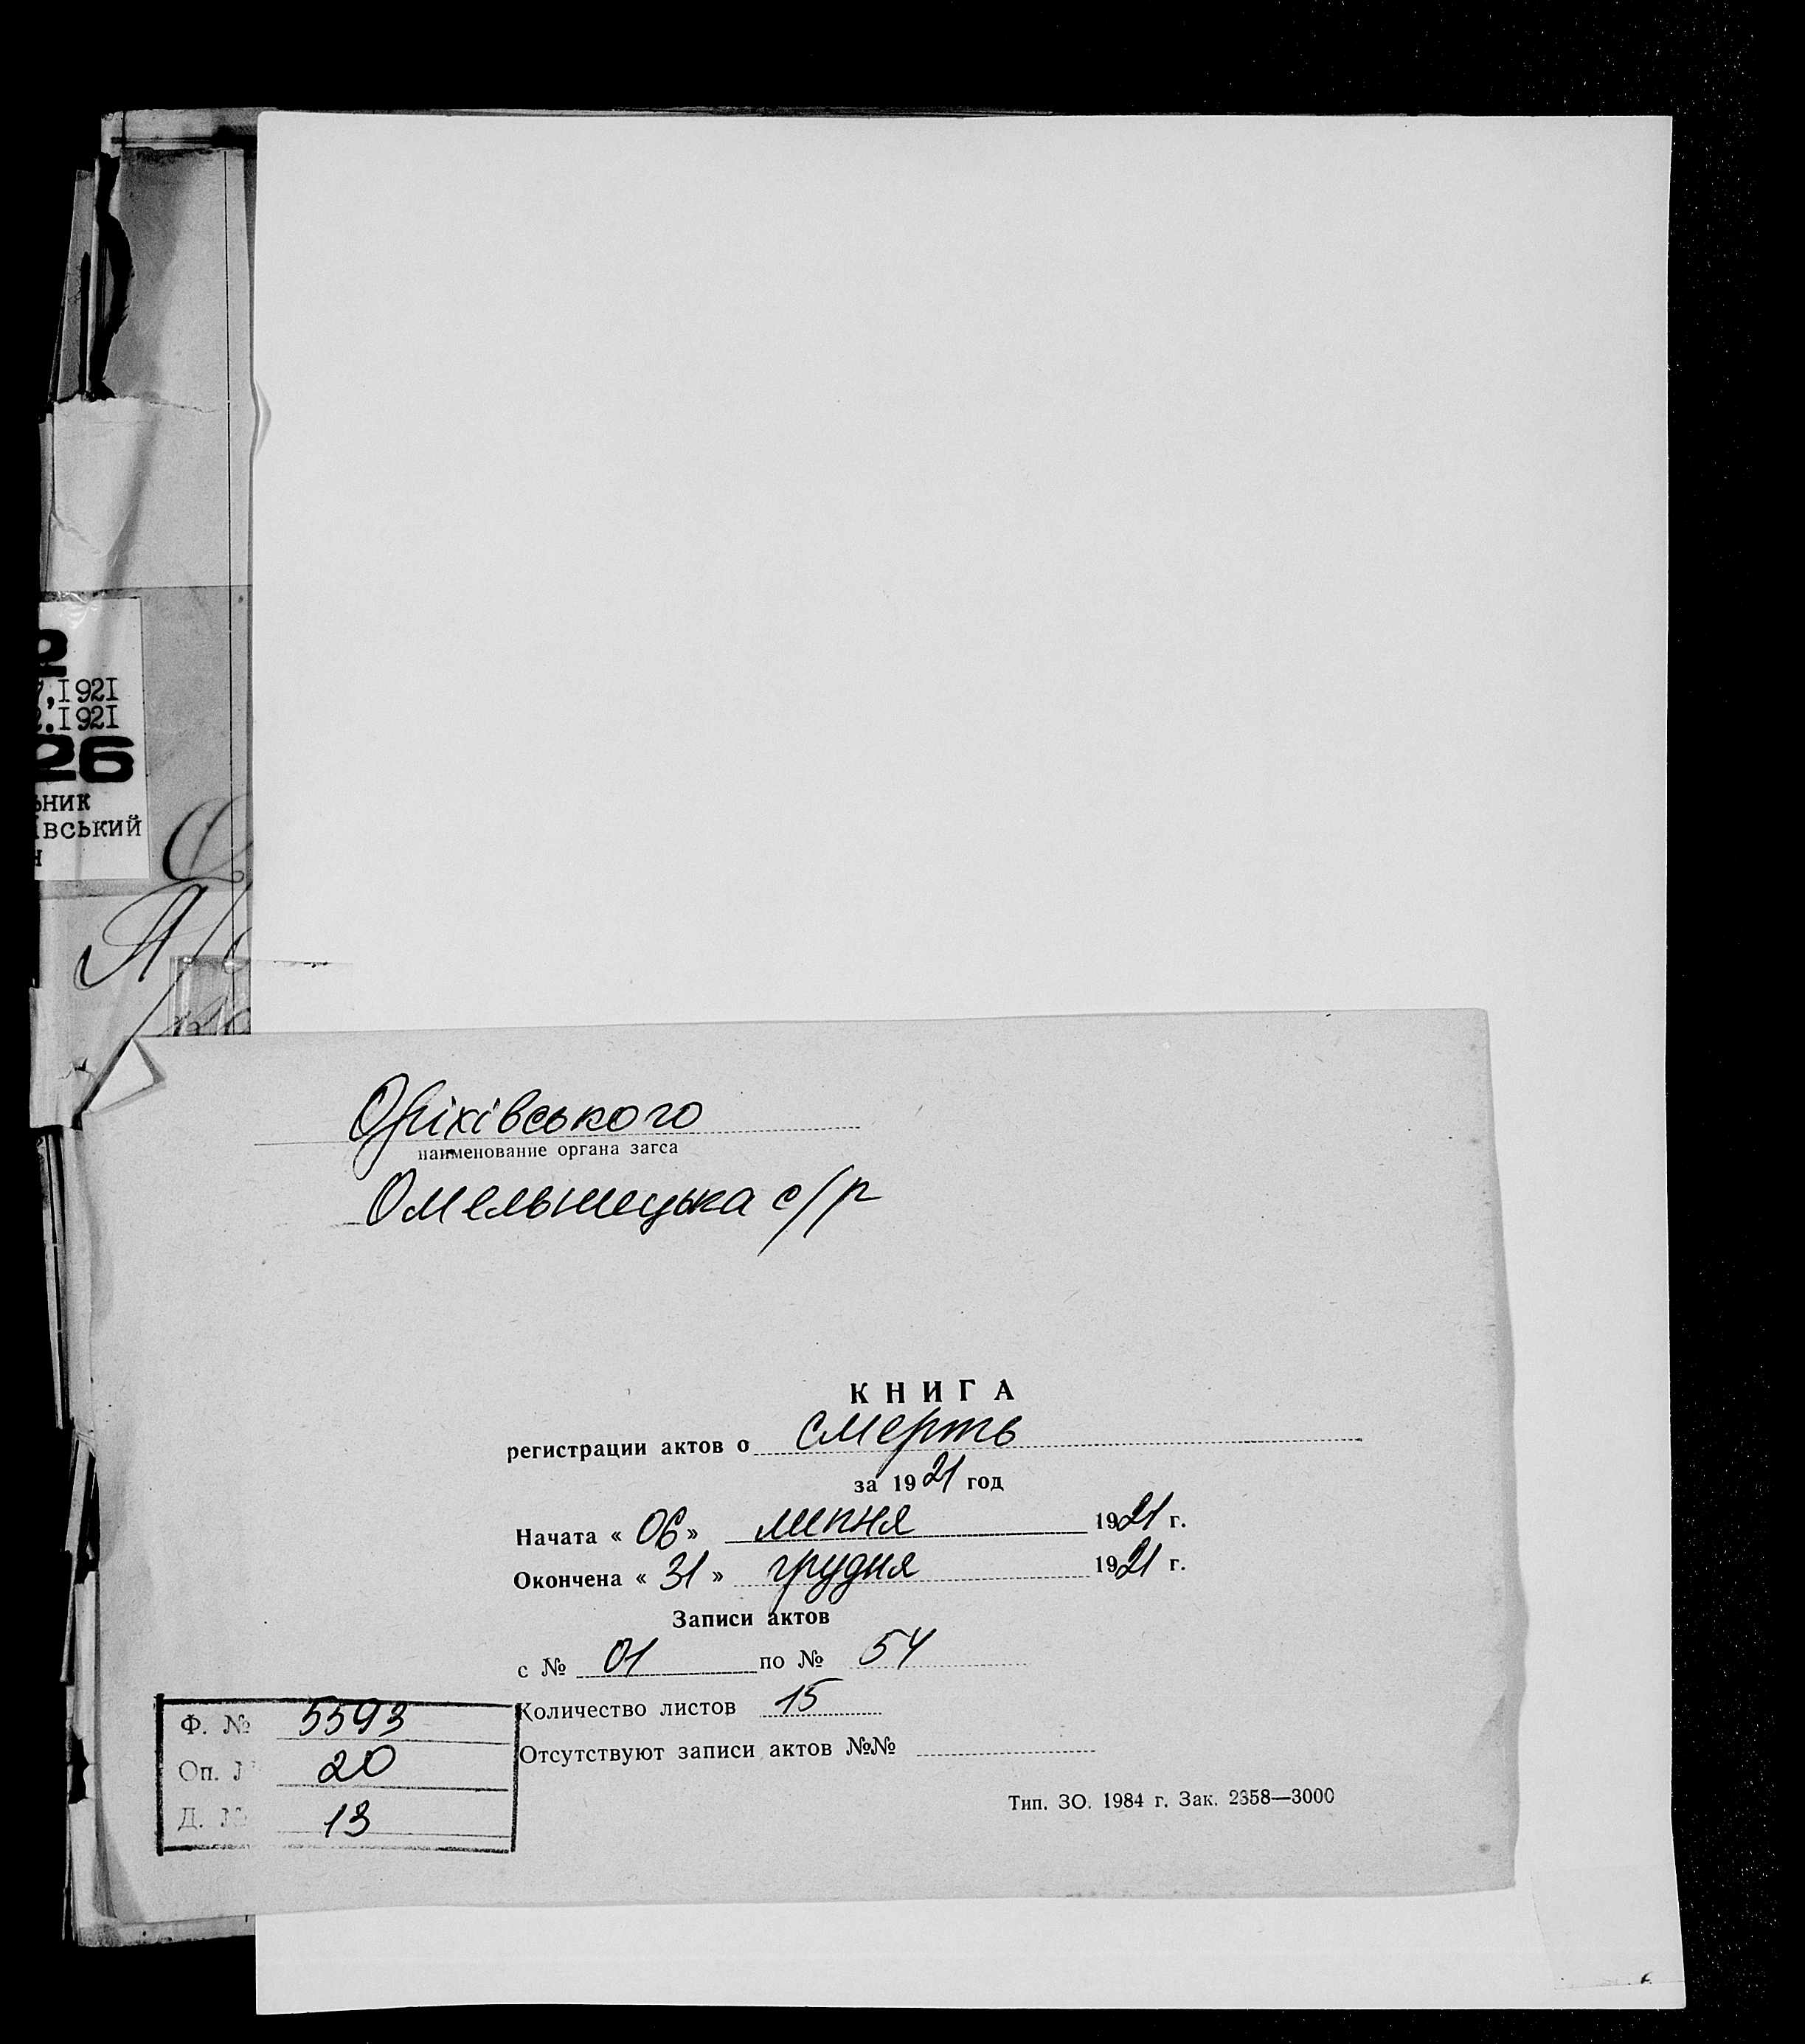 7.1921
2.1921
26
ьник
івський
н
Оріхівського
наименование органа загса
Омельницька с/р
КНИГА
регистрации актов о смерть
за 1921 год
Начата « 06 » липня 1921 г.
Окончена « 31 » грудня 1921 г.
Записи актов
с № 01 по № 54
Количество листов 15
Отсутствуют записи актов №№
Ф. № 5593
Оп. № 20
Д. № 13
Тип. ЗО. 1984 г. Зак. 2358—3000